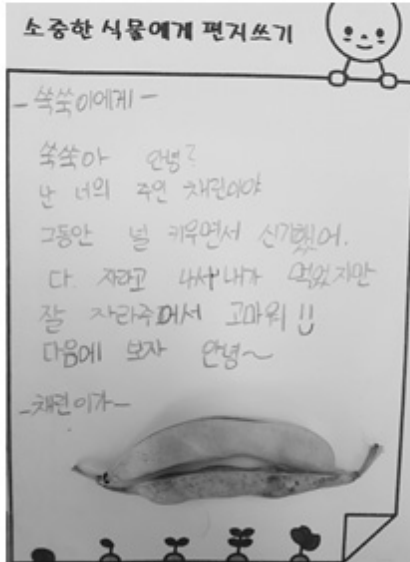 소중한 식물에게 편지쓰기
- 쑥쑥이에게 -
쑥쑥아 안녕?
난 너의 주인 채린이야
그동안 널 키우면서 신기했어.
다. 자라고 나서 내가 먹었지만
잘 자라주어서 고마워!!
다음에 보자 안녕~
- 채린이가 -